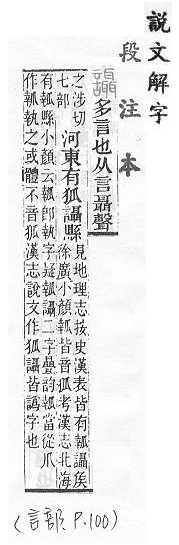 說文解字
段注本
讘多言也从言聶聲
之涉切
七部
河東有狐讘縣
見地理志按史漢表皆有瓡讘矦
徐廣小顏瓡皆音狐考漢志北海
有瓡縣小顏云瓡卽執字疑瓡讘二字疊韵瓡當從爪
作瓡執之或體不音狐漢志說文作狐讘皆譌字也
(言部 P.100)